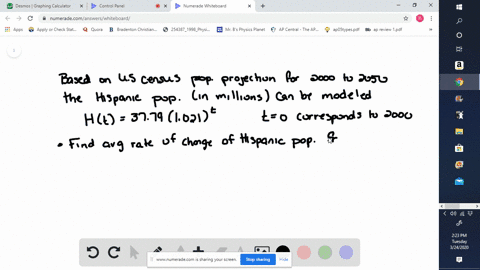 Desmos | Graphing Calculator
Control Panel
Numerade Whiteboard
numerade.com/answers/whiteboard/
Apps
Apply or Check Stat...
Quora
Bradenton Christian...
Mr. B's Physics Planet
AP Central - The AP...
ap review 1.pdf
1
Based on US census pop. projection for 2000 to 2050
the Hispanic pop. (in millions) can be modeled
H(t) = 37.79 (1.021)^t t=0 corresponds to 2000
• Find avg rate of change of Hispanic pop.
www.numerade.com is sharing your screen.
Stop sharing
Hide
2:23 PM
Tuesday
3/24/2020